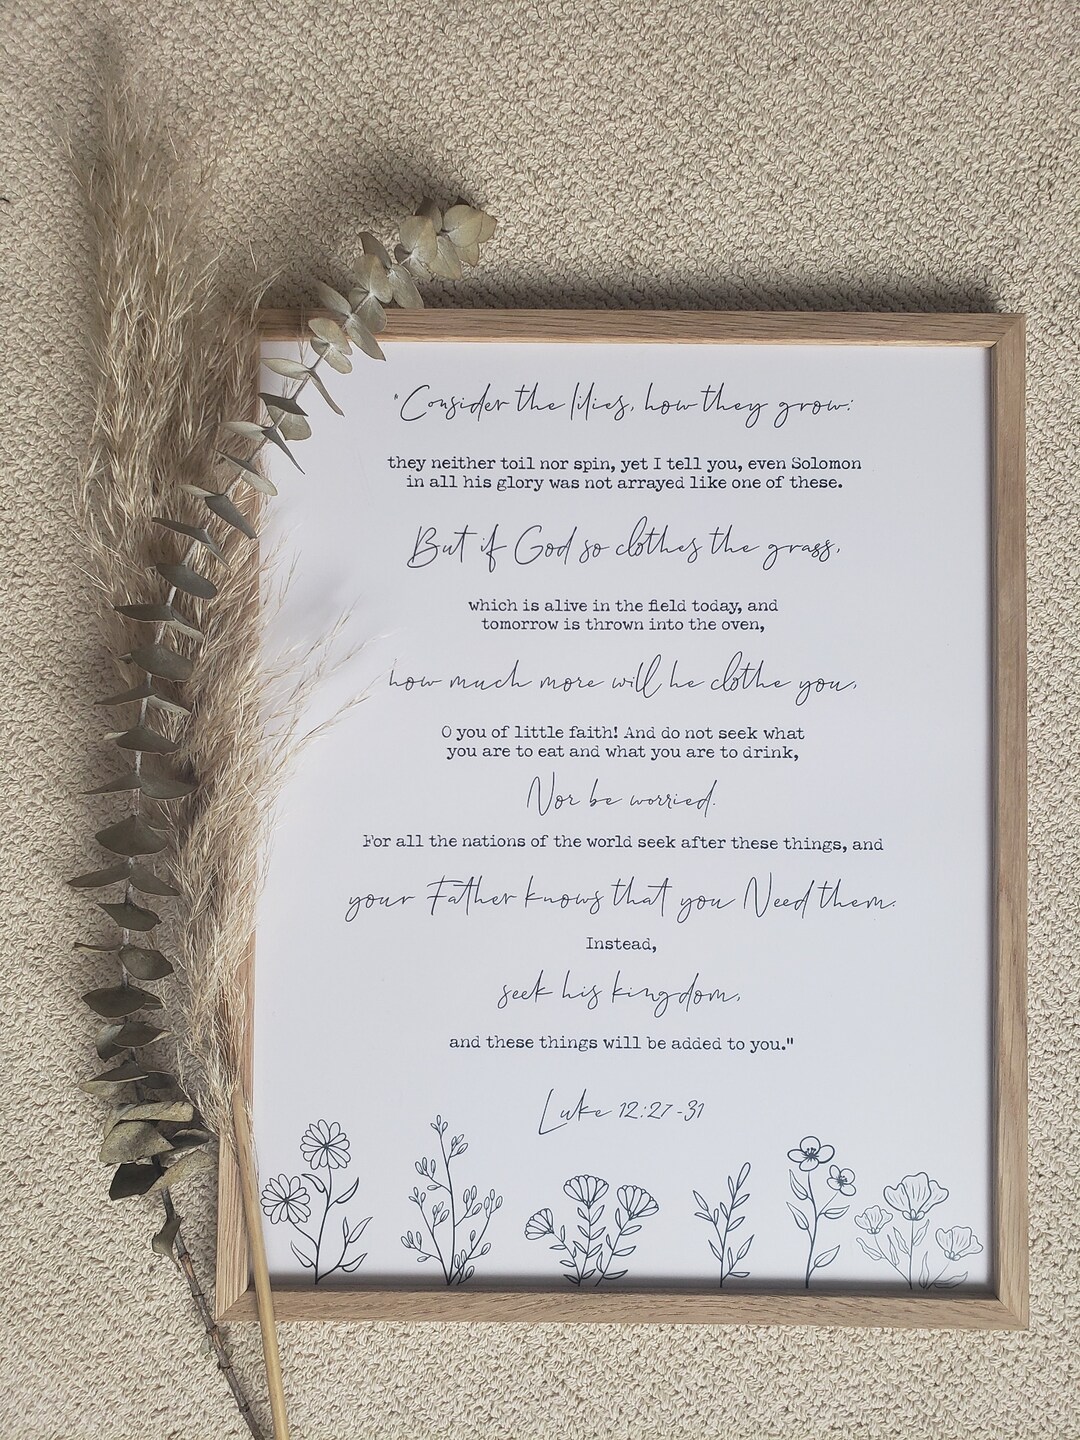 "Consider the lilies, how they grow:
they neither toil nor spin, yet I tell you, even Solomon
in all his glory was not arrayed like one of these.
But if God so clothes the grass,
which is alive in the field today, and
tomorrow is thrown into the oven,
how much more will he clothe you,
O you of little faith! And do not seek what
you are to eat and what you are to drink,
Nor be worried.
For all the nations of the world seek after these things, and
your Father knows that you Need them.
Instead,
seek his kingdom,
and these things will be added to you."
Luke 12:27-31